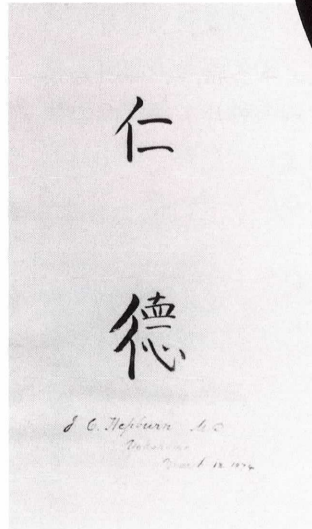 仁
徳
J. C. Hepburn M.D.
Yokohama
March 12 1874